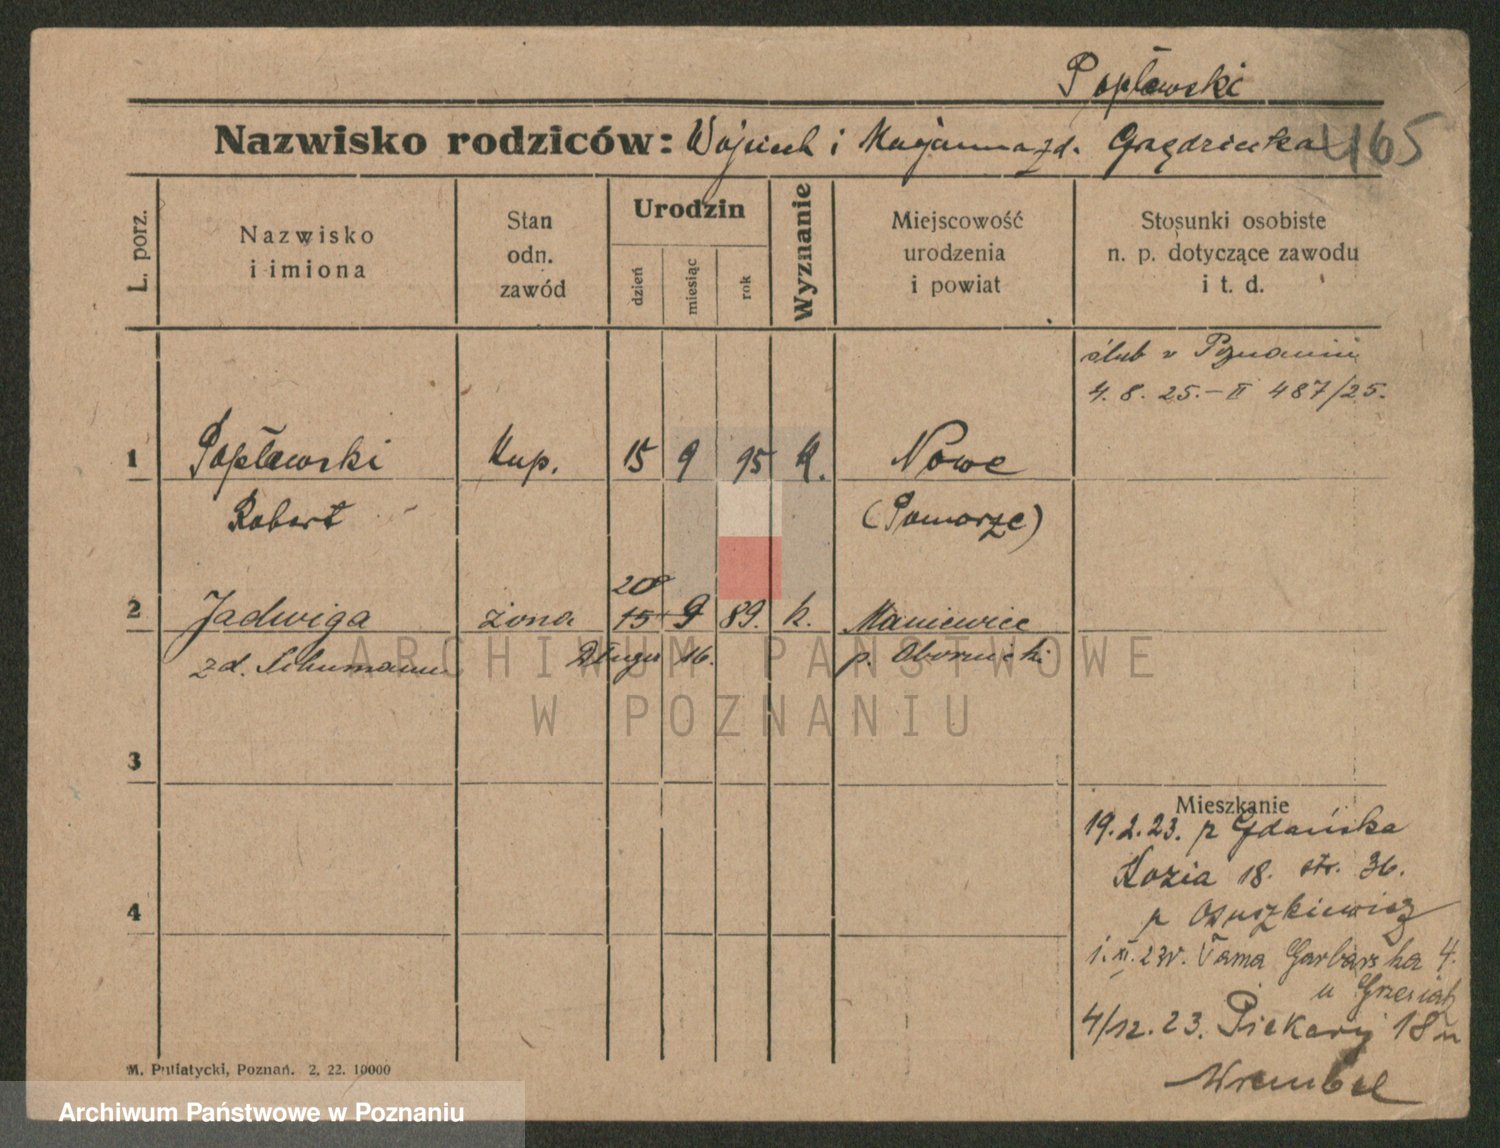 Popławski
Nazwisko rodziców: Wojciech i Marjanna zd. Grędzicka 465
L. porz.
Nazwisko i imiona
Stan odn. zawód
Urodzin
dzień
miesiąc
rok
Wyznanie
Miejscowość urodzenia i powiat
Stosunki osobiste n. p. dotyczące zawodu i t. d.
ślub w Poznaniu
4. 8. 25. – II 487/25.
1 Popławski Kup. 15 9 95 k. Nowe
Robert (Pomorze)
20
2 Jadwiga żona 15 9 89. k. Maniewice
zd. Schumann Długa 16. p. Obornicki
3
Mieszkanie
19.2.23. z Gdańska
Kozia 18. str. 36.
p
4
1. XI. 23r. Tama Garbarska 4.
u
4/12. 23. Piekary 18 u
Wrembel
M. Putiatycki, Poznań. 2. 22. 10000
ARCHIWUM PAŃSTWOWE
W POZNANIU
Archiwum Państwowe w Poznaniu